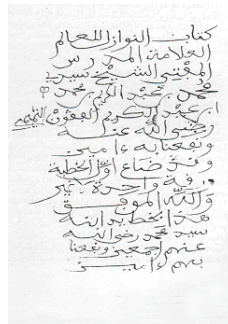 كتاب النوازل للعالم
العلامة المدرس
المفتي الشيخ سيدي
محمد بن عبد الكريم بن محمد
ابن عبد الكريم الفقون التميمي
رضي الله عنه
ونفعنا به ءامين
وقد ضاع اول الخطبة
في واحدة غير
والله الموفق
هذا بخط يد ابنه
سيد محمد رضي الله
عنهم اجمعين ونفعنا
بهم ءامين